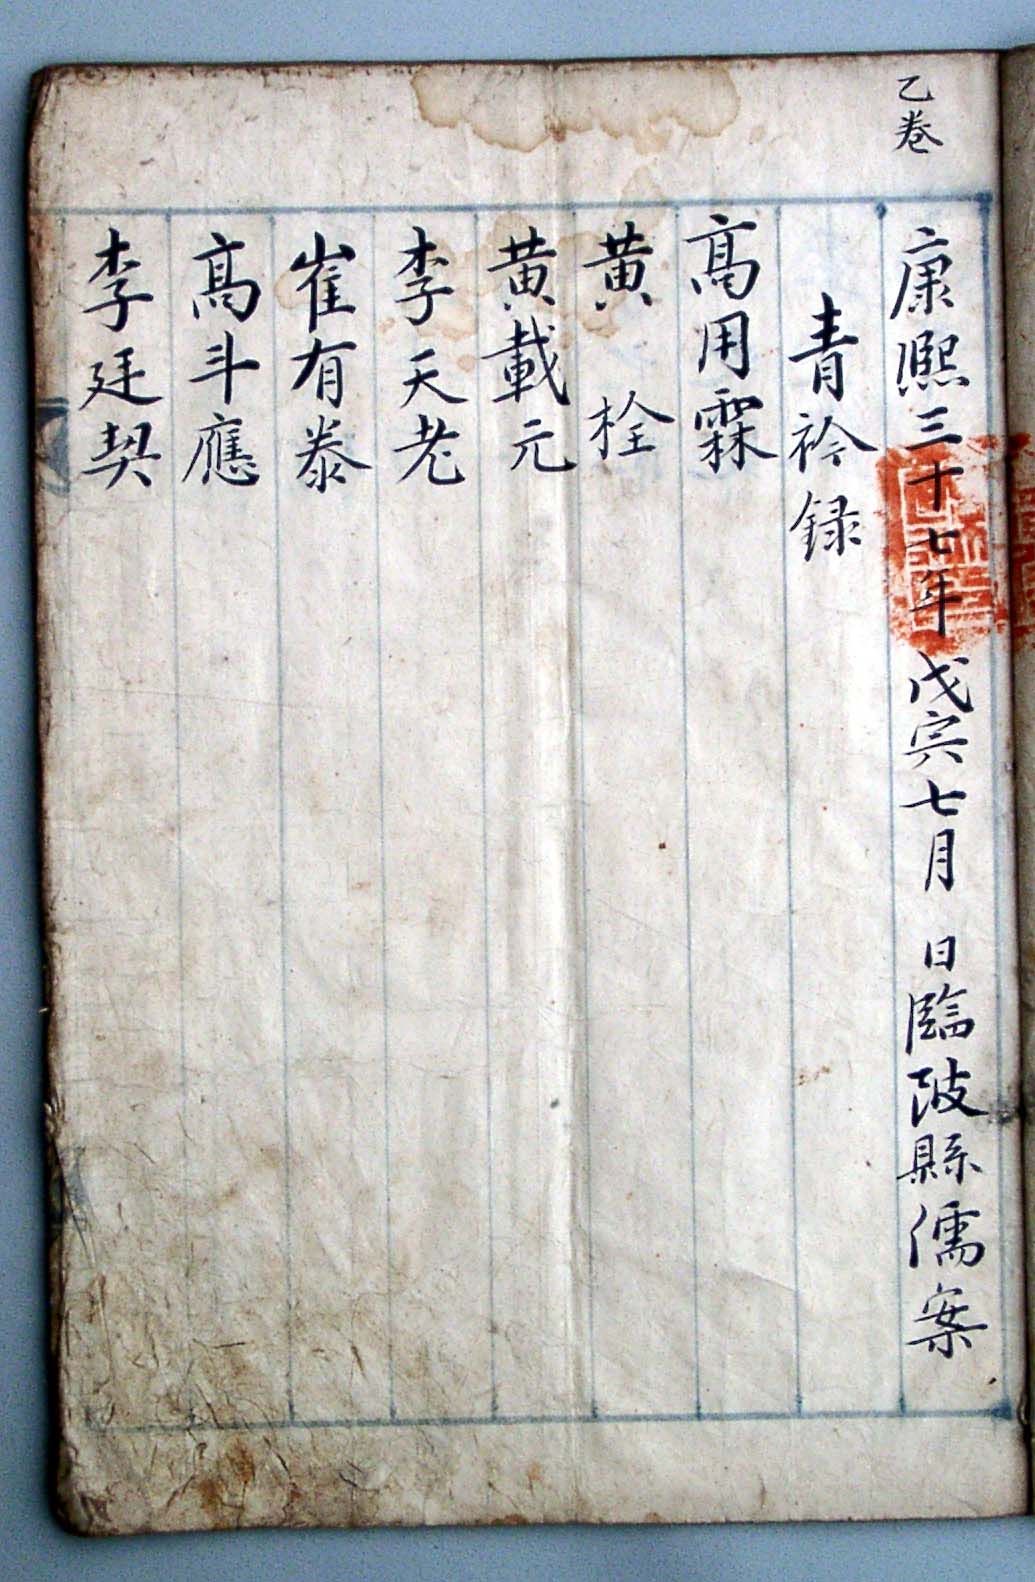 乙卷
康熙三十七年戊寅七月 日臨陂縣儒案
青衿録
高用霖
黄 栓
黄載元
李天老
崔有泰
高斗應
李廷契